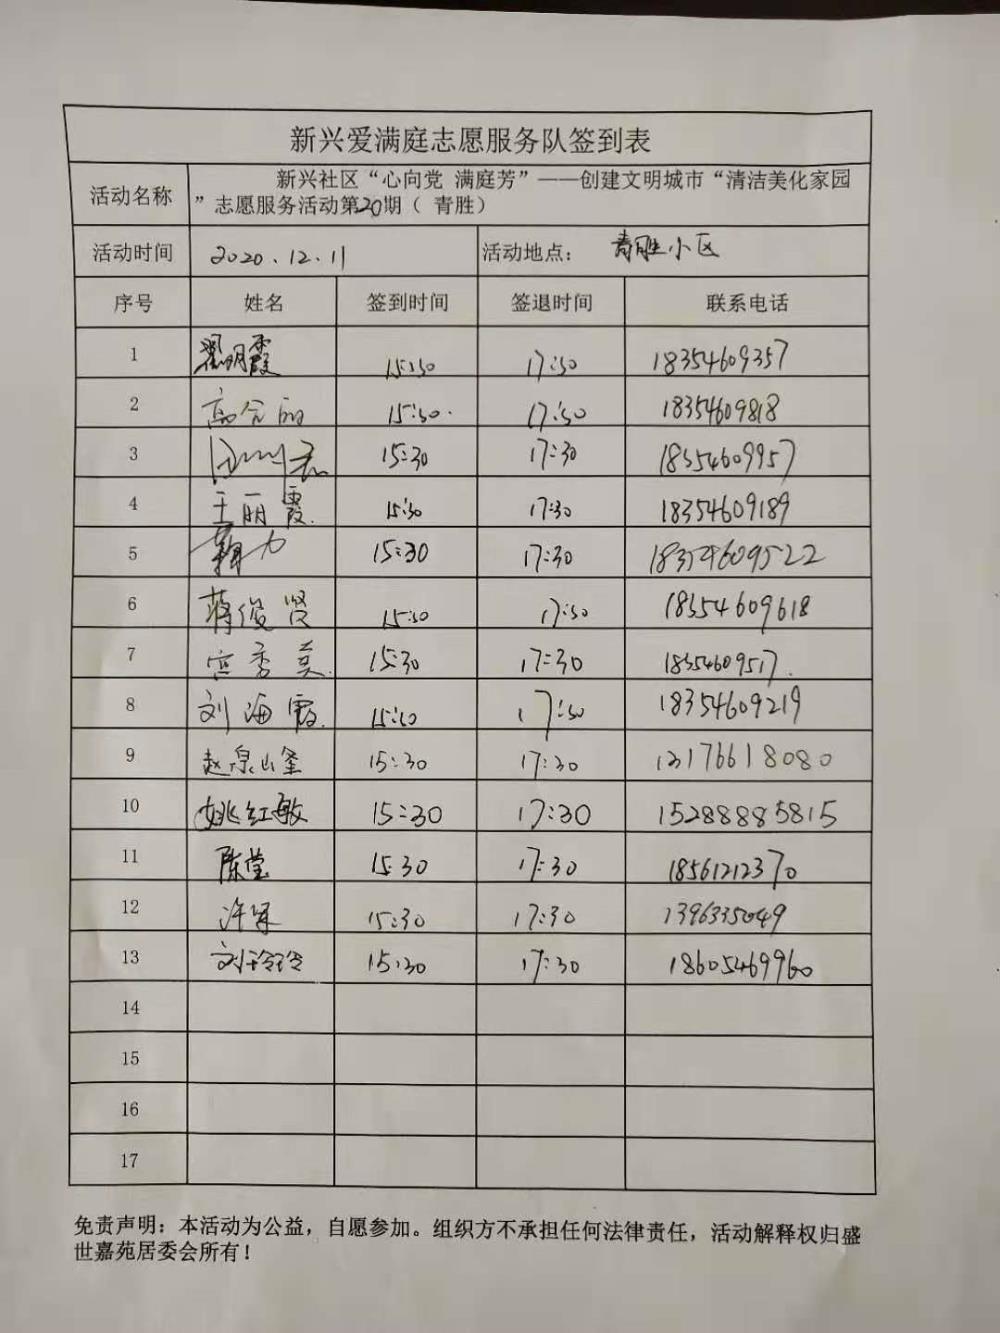 新兴爱满庭志愿服务队签到表
活动名称 新兴社区“心向党 满庭芳”——创建文明城市“清洁美化家园
”志愿服务活动第20期（ 青胜）
活动时间 2020.12.11 活动地点： 青胜小区
序号 姓名 签到时间 签退时间 联系电话
1 翟明霞 15:30 17:30 18354609357
2 15:30 17:30 18354609818
3 15:30 17:30 18354609957
4 王丽霞 15:30 17:30 18354609189
5 韩力 15:30 17:30 18354609522
6 蒋俊贤 15:30 17:30 18354609618
7 宫秀英 15:30 17:30 18354609517
8 刘海霞 15:30 17:30 18354609219
9 赵泉山 15:30 17:30 13176618080
10 姚红敏 15:30 17:30 15288885815
11 陈莹 15:30 17:30 18561212370
12 15:30 17:30 1396335049
13 刘玲玲 15:30 17:30 18605469960
14
15
16
17
免责声明：本活动为公益，自愿参加。组织方不承担任何法律责任，活动解释权归盛
世嘉苑居委会所有！